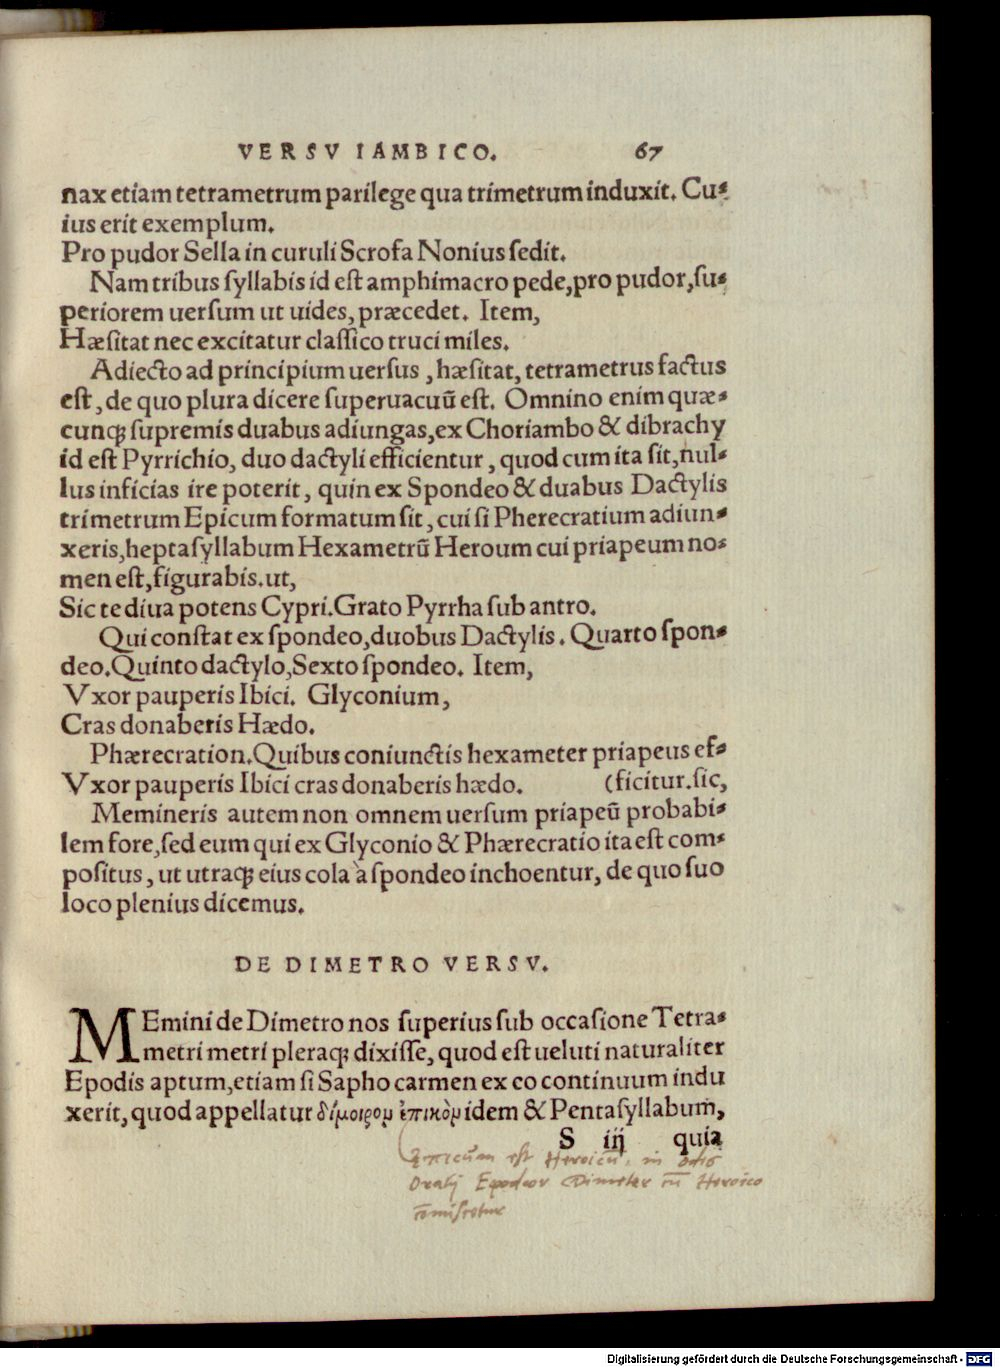 VERSV IAMBICO. 67
nax etiam tetrametrum parilege qua trimetrum induxit. Cu-
ius erit exemplum.
Pro pudor Sella in curuli Scrofa Nonius ſedit.
Nam tribus ſyllabis id eſt amphimacro pede, pro pudor, ſu-
periorem uerſum ut uides, præcedet. Item,
Hæſitat nec excitatur claſſico truci miles.
Adiecto ad principium uerſus, hæſitat, tetrametrus factus
eſt, de quo plura dicere ſuperuacuū eſt. Omnino enim quæ-
cunqꝫ ſupremis duabus adiungas, ex Choriambo & dibrachy
id eſt Pyrrichio, duo dactyli efficientur, quod cum ita ſit, nul-
lus inficias ire poterit, quin ex Spondeo & duabus Dactylis
trimetrum Epicum formatum ſit, cui ſi Pherecratium adiun-
xeris, heptaſyllabum Hexametrū Heroum cui priapeum no-
men eſt, figurabis. ut,
Sic te diua potens Cypri. Grato Pyrrha ſub antro.
Qui conſtat ex ſpondeo, duobus Dactylis. Quarto ſpon-
deo. Quinto dactylo, Sexto ſpondeo. Item,
Vxor pauperis Ibici. Glyconium,
Cras donaberis Hædo.
Phærecration. Quibus coniunctis hexameter priapeus ef-
Vxor pauperis Ibici cras donaberis hædo. (ficitur. ſic,
Memineris autem non omnem uerſum priapeū probabi-
lem fore, ſed eum qui ex Glyconio & Phærecratio ita eſt com-
poſitus, ut utraqꝫ eius cola à ſpondeo inchoentur, de quo ſuo
loco plenius dicemus.
DE DIMETRO VERSV.
MEmini de Dimetro nos ſuperius ſub occaſione Tetra-
metri metri pleraqꝫ dixiſſe, quod eſt ueluti naturaliter
Epodis aptum, etiam ſi Sapho carmen ex eo continuum indu
xerit, quod appellatur δίμοιρον ἐπικὸν idem & Pentaſyllabum,
S iij quia
est Heroicū, in odis
Oratij Dimeter cū Heroico
Digitalisierung gefördert durch die Deutsche Forschungsgemeinschaft - DFG